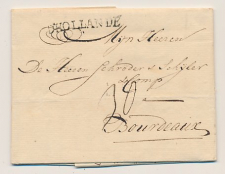 HOLLANDE
Myn Heeren
De Heeren Schroder & Schyler
& Comp
Bourdeaux